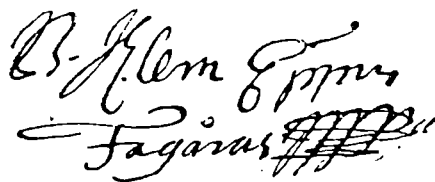 B. Klein Eppus
Fagaras